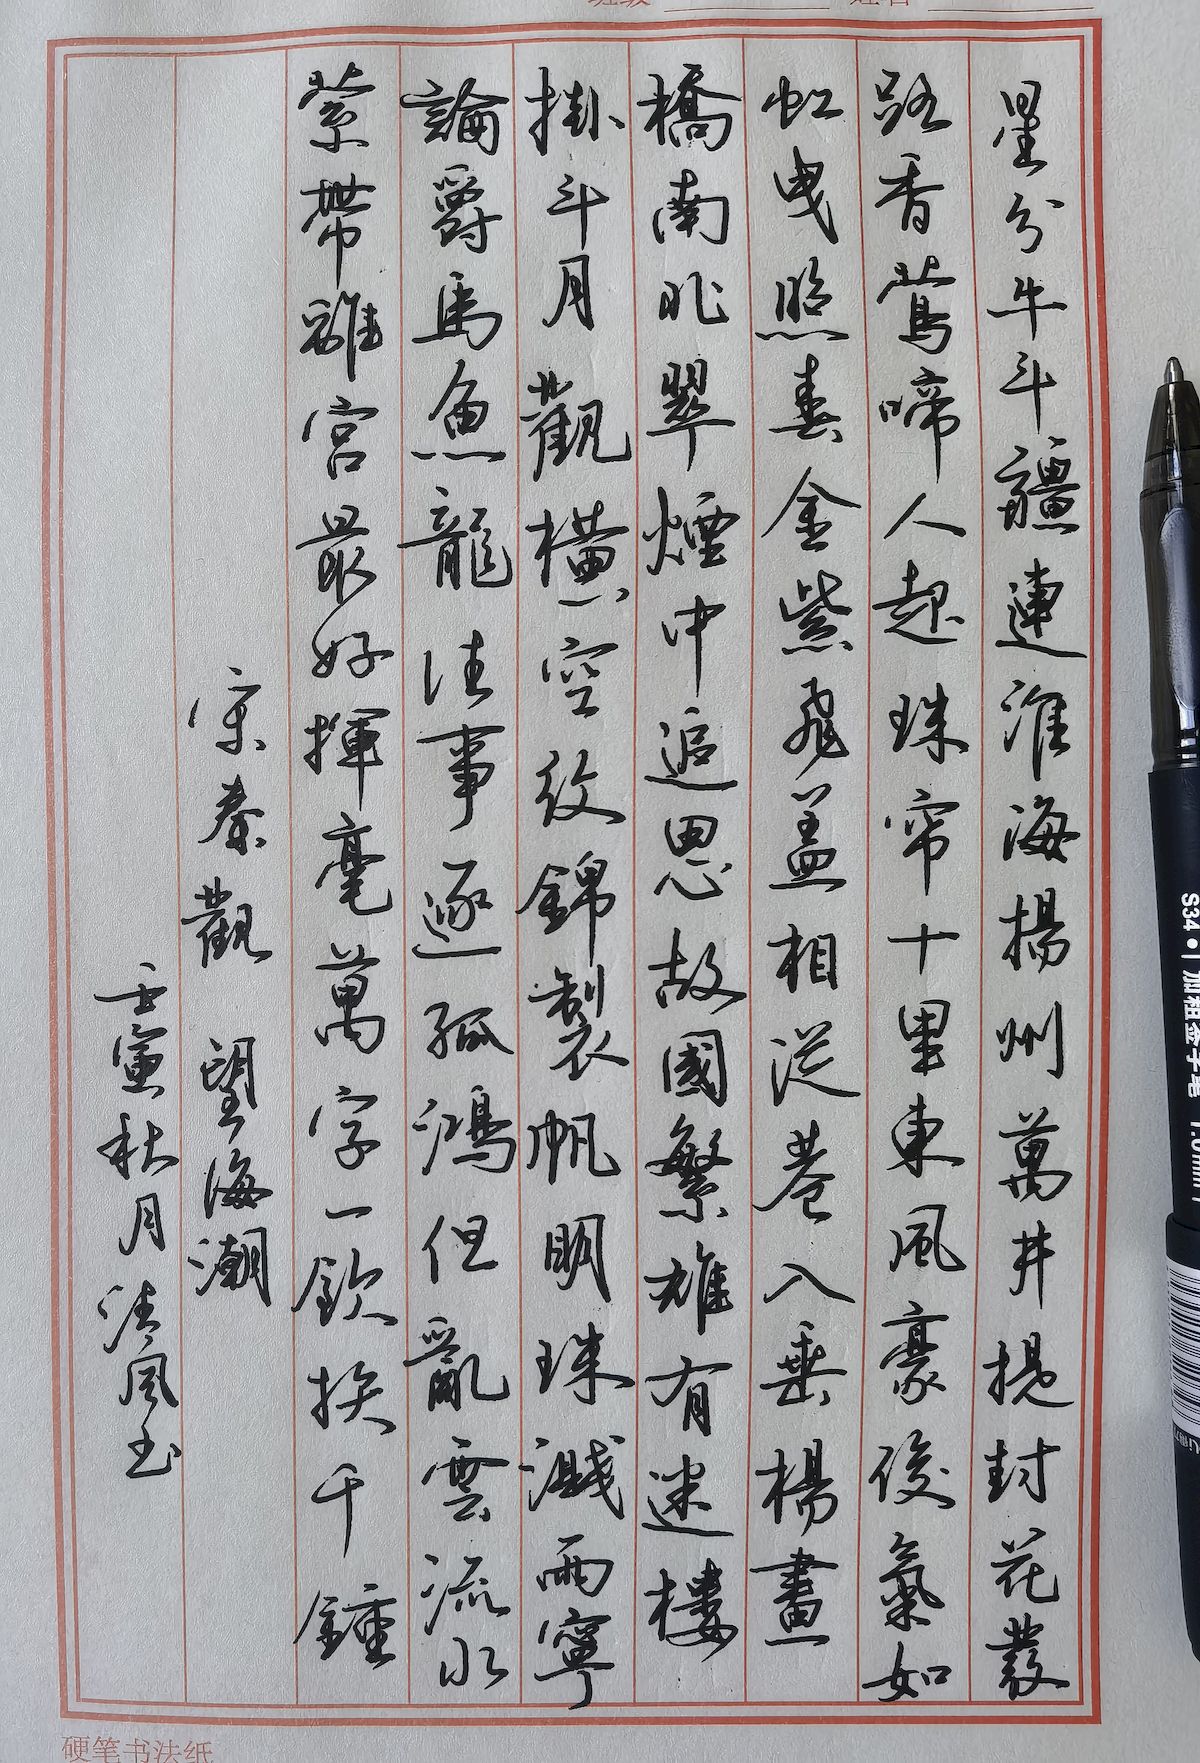 班级 姓名
星分牛斗疆連淮海揚州萬井提封花發
路香鶯啼人起珠帘十里東風豪俊氣如
虹曳照春金紫飛蓋相從巷入垂楊畫
橋南北翠煙中追思故國繁雄有迷樓
掛斗月觀橫空紋錦製帆明珠濺雨寧
論爵馬魚龍往事逐孤鴻但亂雲流水
縈帶離宮最好揮毫萬字一飲拚千鍾
宋秦觀 望海潮
壬寅秋月 清風書
硬笔书法纸
S34
1.0mm